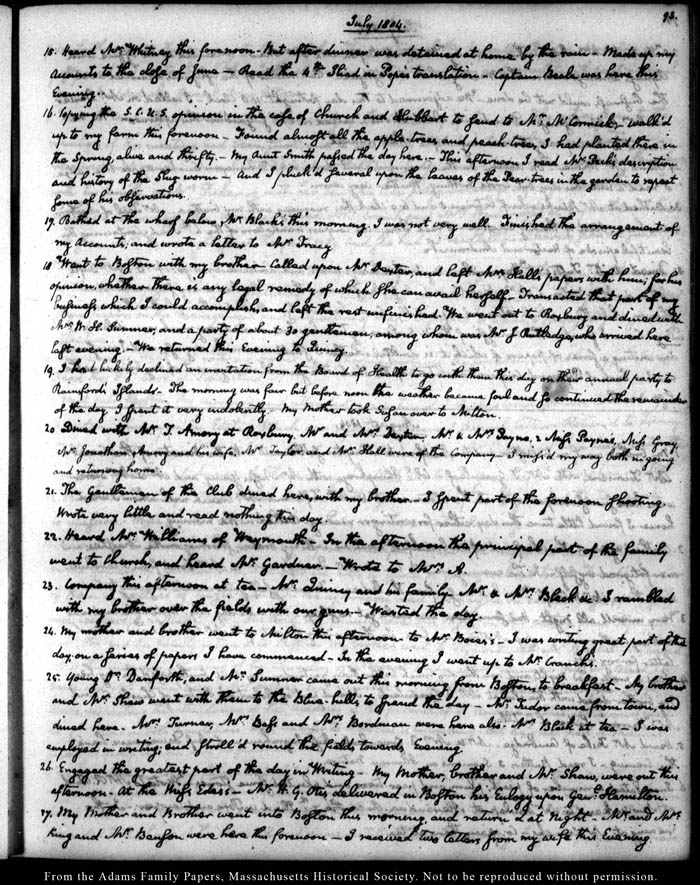 July 1804.
93.
15. Heard Mr. Whitney this forenoon - But after dinner was detained at home by the rain - Made up my
Accounts to the close of June - Read the 4th. Iliad in Pope's translation - Captain Beale was here this
Evening.
16. Copying the S.C.U.S. opinion in the case of Church and Hubbart to send to Mr. McCormick - walk'd
up to my farm this forenoon - Found almost all the apple-trees and peach-trees, I had planted there in
the Spring, alive and thrifty - My Aunt Smith passed the day here. - This afternoon I read Mr. Peck's description
and history of the Slug worm - And I pluck'd several upon the leaves of the Pear-trees in the garden to repeat
some of his observations.
17. Bathed at the wharf below Mr. Black's this morning. I was not very well. Finished the arrangement of
my Accounts, and wrote a letter to Mr. Tracy
18 Went to Boston with my brother. Called upon Mr. Dexter, and left Mrs. Hall's papers with him; for his
opinion, whether there is any legal remedy of which she can avail herself - Transacted that part of my
business which I could accomplish, and left the rest unfinished. We went out to Roxbury and dined with
Mr. W. H. Sumner, and a party of about 30 gentlemen; among whom was Mr. J. Rutledge, who arrived here
last evening. - We returned this Evening to Quincy.
19. I had luckily declined an invitation from the Board of Health to go with them this day on their annual party to
Rainsford's Islands - The morning was fair but before noon the weather became foul and so continued the remainder
of the day. I spent it very indolently. My Mother took Susan over to Milton.
20 Dined with Mr. T. Amory at Roxbury. Mr and Mrs. Dexter, Mr. & Mrs. Payne, 2 Miss Paynes, Miss Gray,
Mr. Jonathan Amory and his wife, Mr. Taylor, and Mr. Hall were of the Company - I miss'd my way both in going
and returning home.
21. The Gentlemen of the Club dined here, with my brother. - I spent part of the forenoon shooting.
Wrote very little and read nothing this day.
22. Heard Mr. Williams of Weymouth - In the afternoon the principal part of the family
went to Church, and heard Mr. Gardner. - Wrote to Mrs. A.
23. Company this afternoon at tea - Mr. Quincy and his family - Mr. & Mrs. Black &c I rambled
with my brother over the fields with our guns. - Wasted the day.
24. My mother and brother went to Milton this afternoon to Mr. Boies's - I was writing great part of the
day, on a series of papers I have commenced - In the evening I went up to Mr. Cranch's.
25. Young Dr. Danforth, and Mr. Sumner came out this morning from Boston, to breakfast. - My brother
and Mr. Shaw went with them to the Blue-hills, to spend the day - Mr. Tudor came from town, and
dined here. Mrs. Turner, Mrs. Bass and Mrs. Bordman were here also - Mr Black at tea - I was
employed in writing, and stroll'd round the fields towards Evening.
26. Engaged the greatest part of the day in Writing - My Mother, brother and Mr. Shaw, were out this
afternoon - At the Miss Edes's - Mr. H. G. Otis delivered in Boston his Eulogy upon Genl. Hamilton.
27. My Mother and Brother went into Boston this morning, and return'd at Night - Mr. and Mrs.
King and Mr. Benson were here this forenoon - I received two letters from my wife this Evening
From the Adams Family Papers, Massachusetts Historical Society. Not to be reproduced without permission.